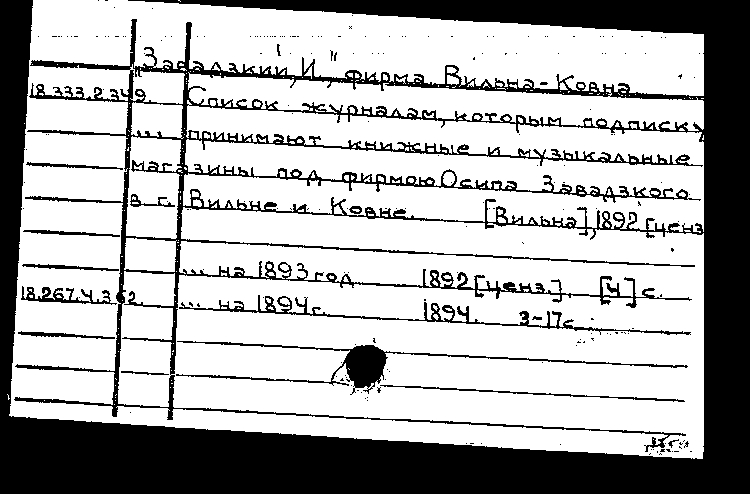 "Завадзкий, И.", фирма. Вильна-Ковна.
18.333.2.349. Список журналам, которым подписку
... принимают книжные и музыкальные
магазины под фирмою Осипа Завадзкого
в г. Вильне и Ковне. [Вильна], 1892 [ценз
... на 1893 год 1892 [ценз.]. [4] с.
18.267.4.362. ... на 1894 г. 1894. 3-17 с.